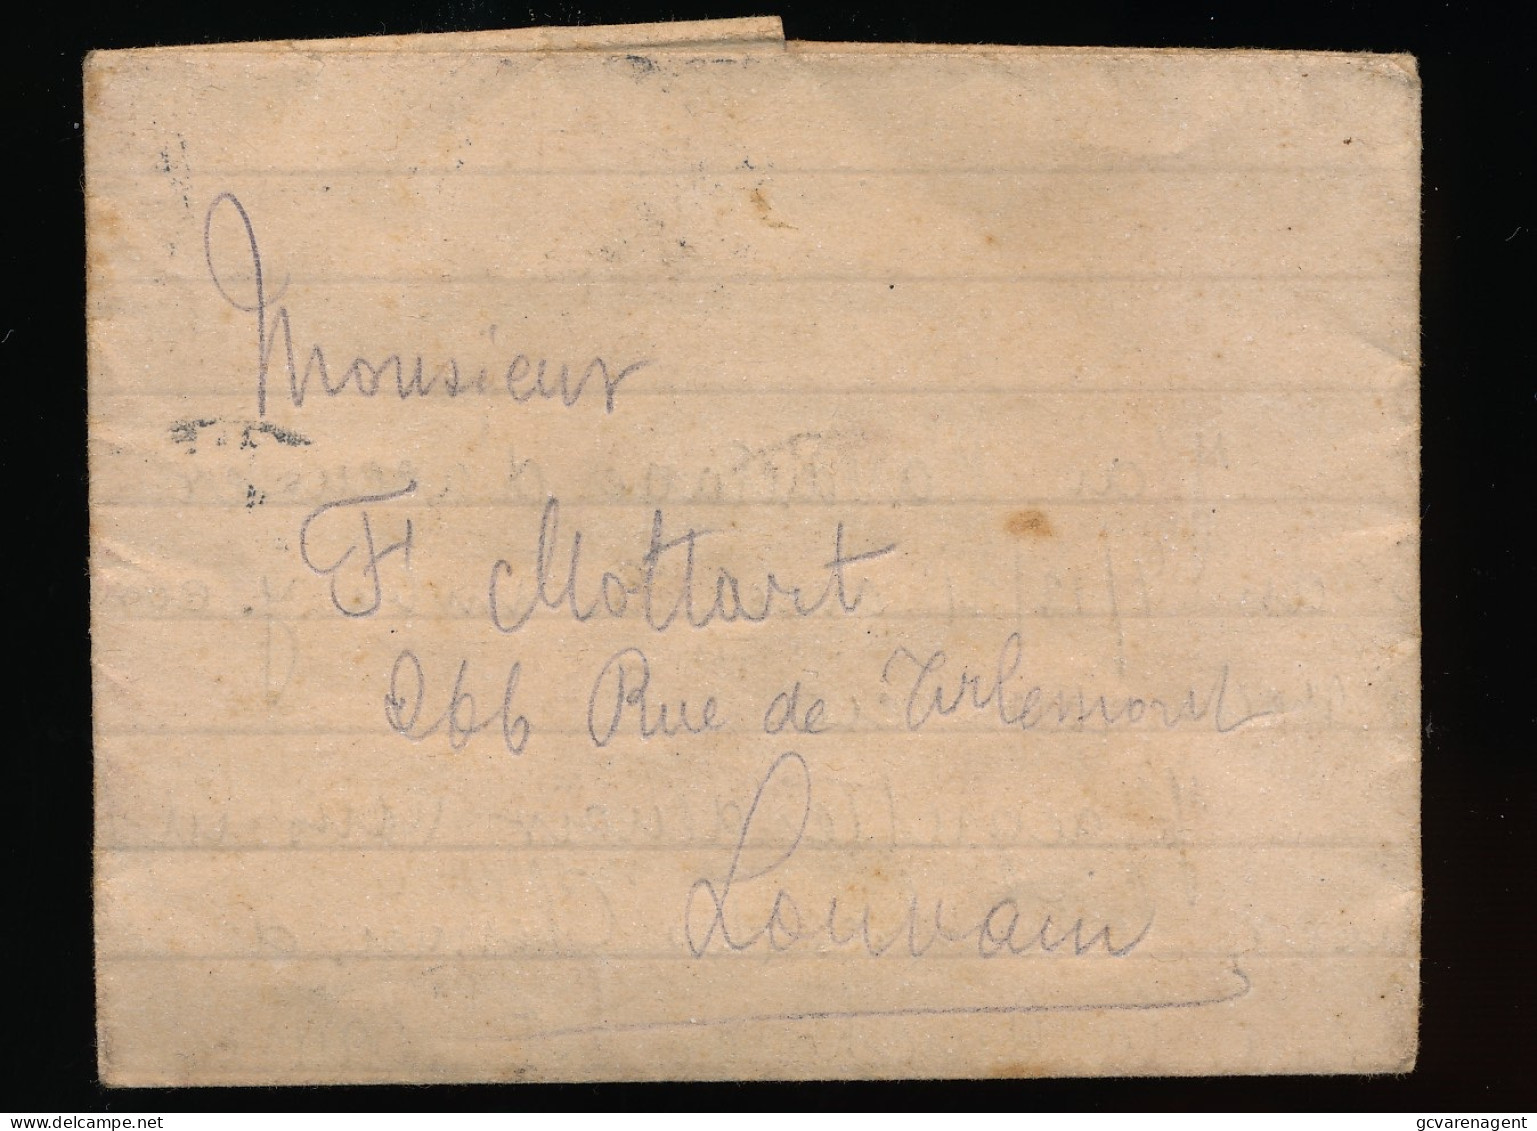 Monsieur
F Mottart
266 Rue de Tirlemont
Louvain
www.delcampe.net
gcvarenagent